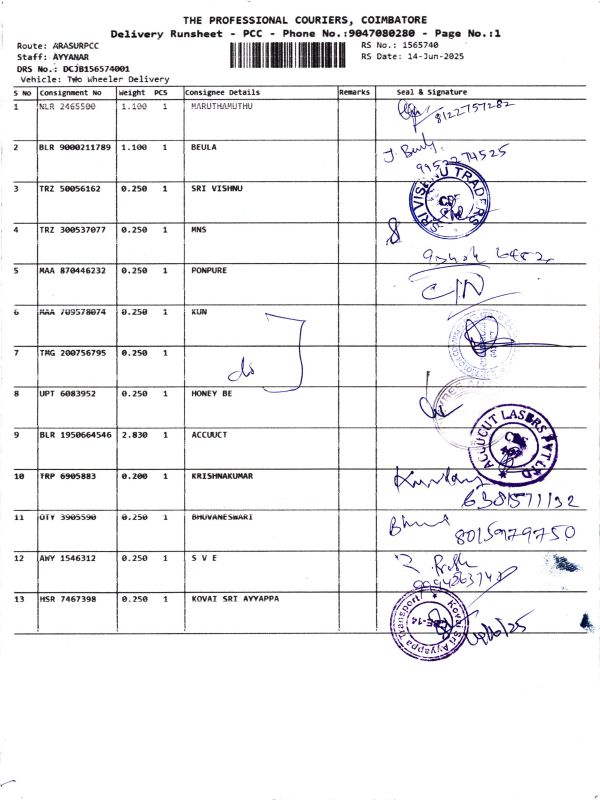 THE PROFESSIONAL COURIERS, COIMBATORE
Delivery Runsheet - PCC - Phone No.:9047080280 - Page No.:1
Route: ARASURPCC
RS No.: 1565740
Staff: AYYANAR
RS Date: 14-Jun-2025
DRS No.: DCJB156574001
Vehicle: Two Wheeler Delivery
S No Consignment No Weight PCS Consignee Details Remarks Seal & Signature
1 NLR 2465500 1.100 1 MARUTHAMUTHU
8122757282
2 BLR 9000211789 1.100 1 BEULA
J. Beuly
9952274525
3 TRZ 50056162 0.250 1 SRI VISHNU
SRI VISHNU TRADERS
CBE
4 TRZ 300537077 0.250 1 MNS
5 MAA 870446232 0.250 1 PONPURE
6 MAA 709578074 0.250 1 KUN
7 TMG 200756795 0.250 1
do
8 UPT 6083952 0.250 1 HONEY BE
9 BLR 1950664546 2.830 1 ACCUUCT
ACCUCUT LASERS PVT LTD
10 TRP 6905883 0.200 1 KRISHNAKUMAR
6381571132
11 OTY 3905590 0.250 1 BHUVANESWARI
8015979750
12 AWY 1546312 0.250 1 S V E
13 HSR 7467398 0.250 1 KOVAI SRI AYYAPPA
Kovai Sri Ayyappa Transport